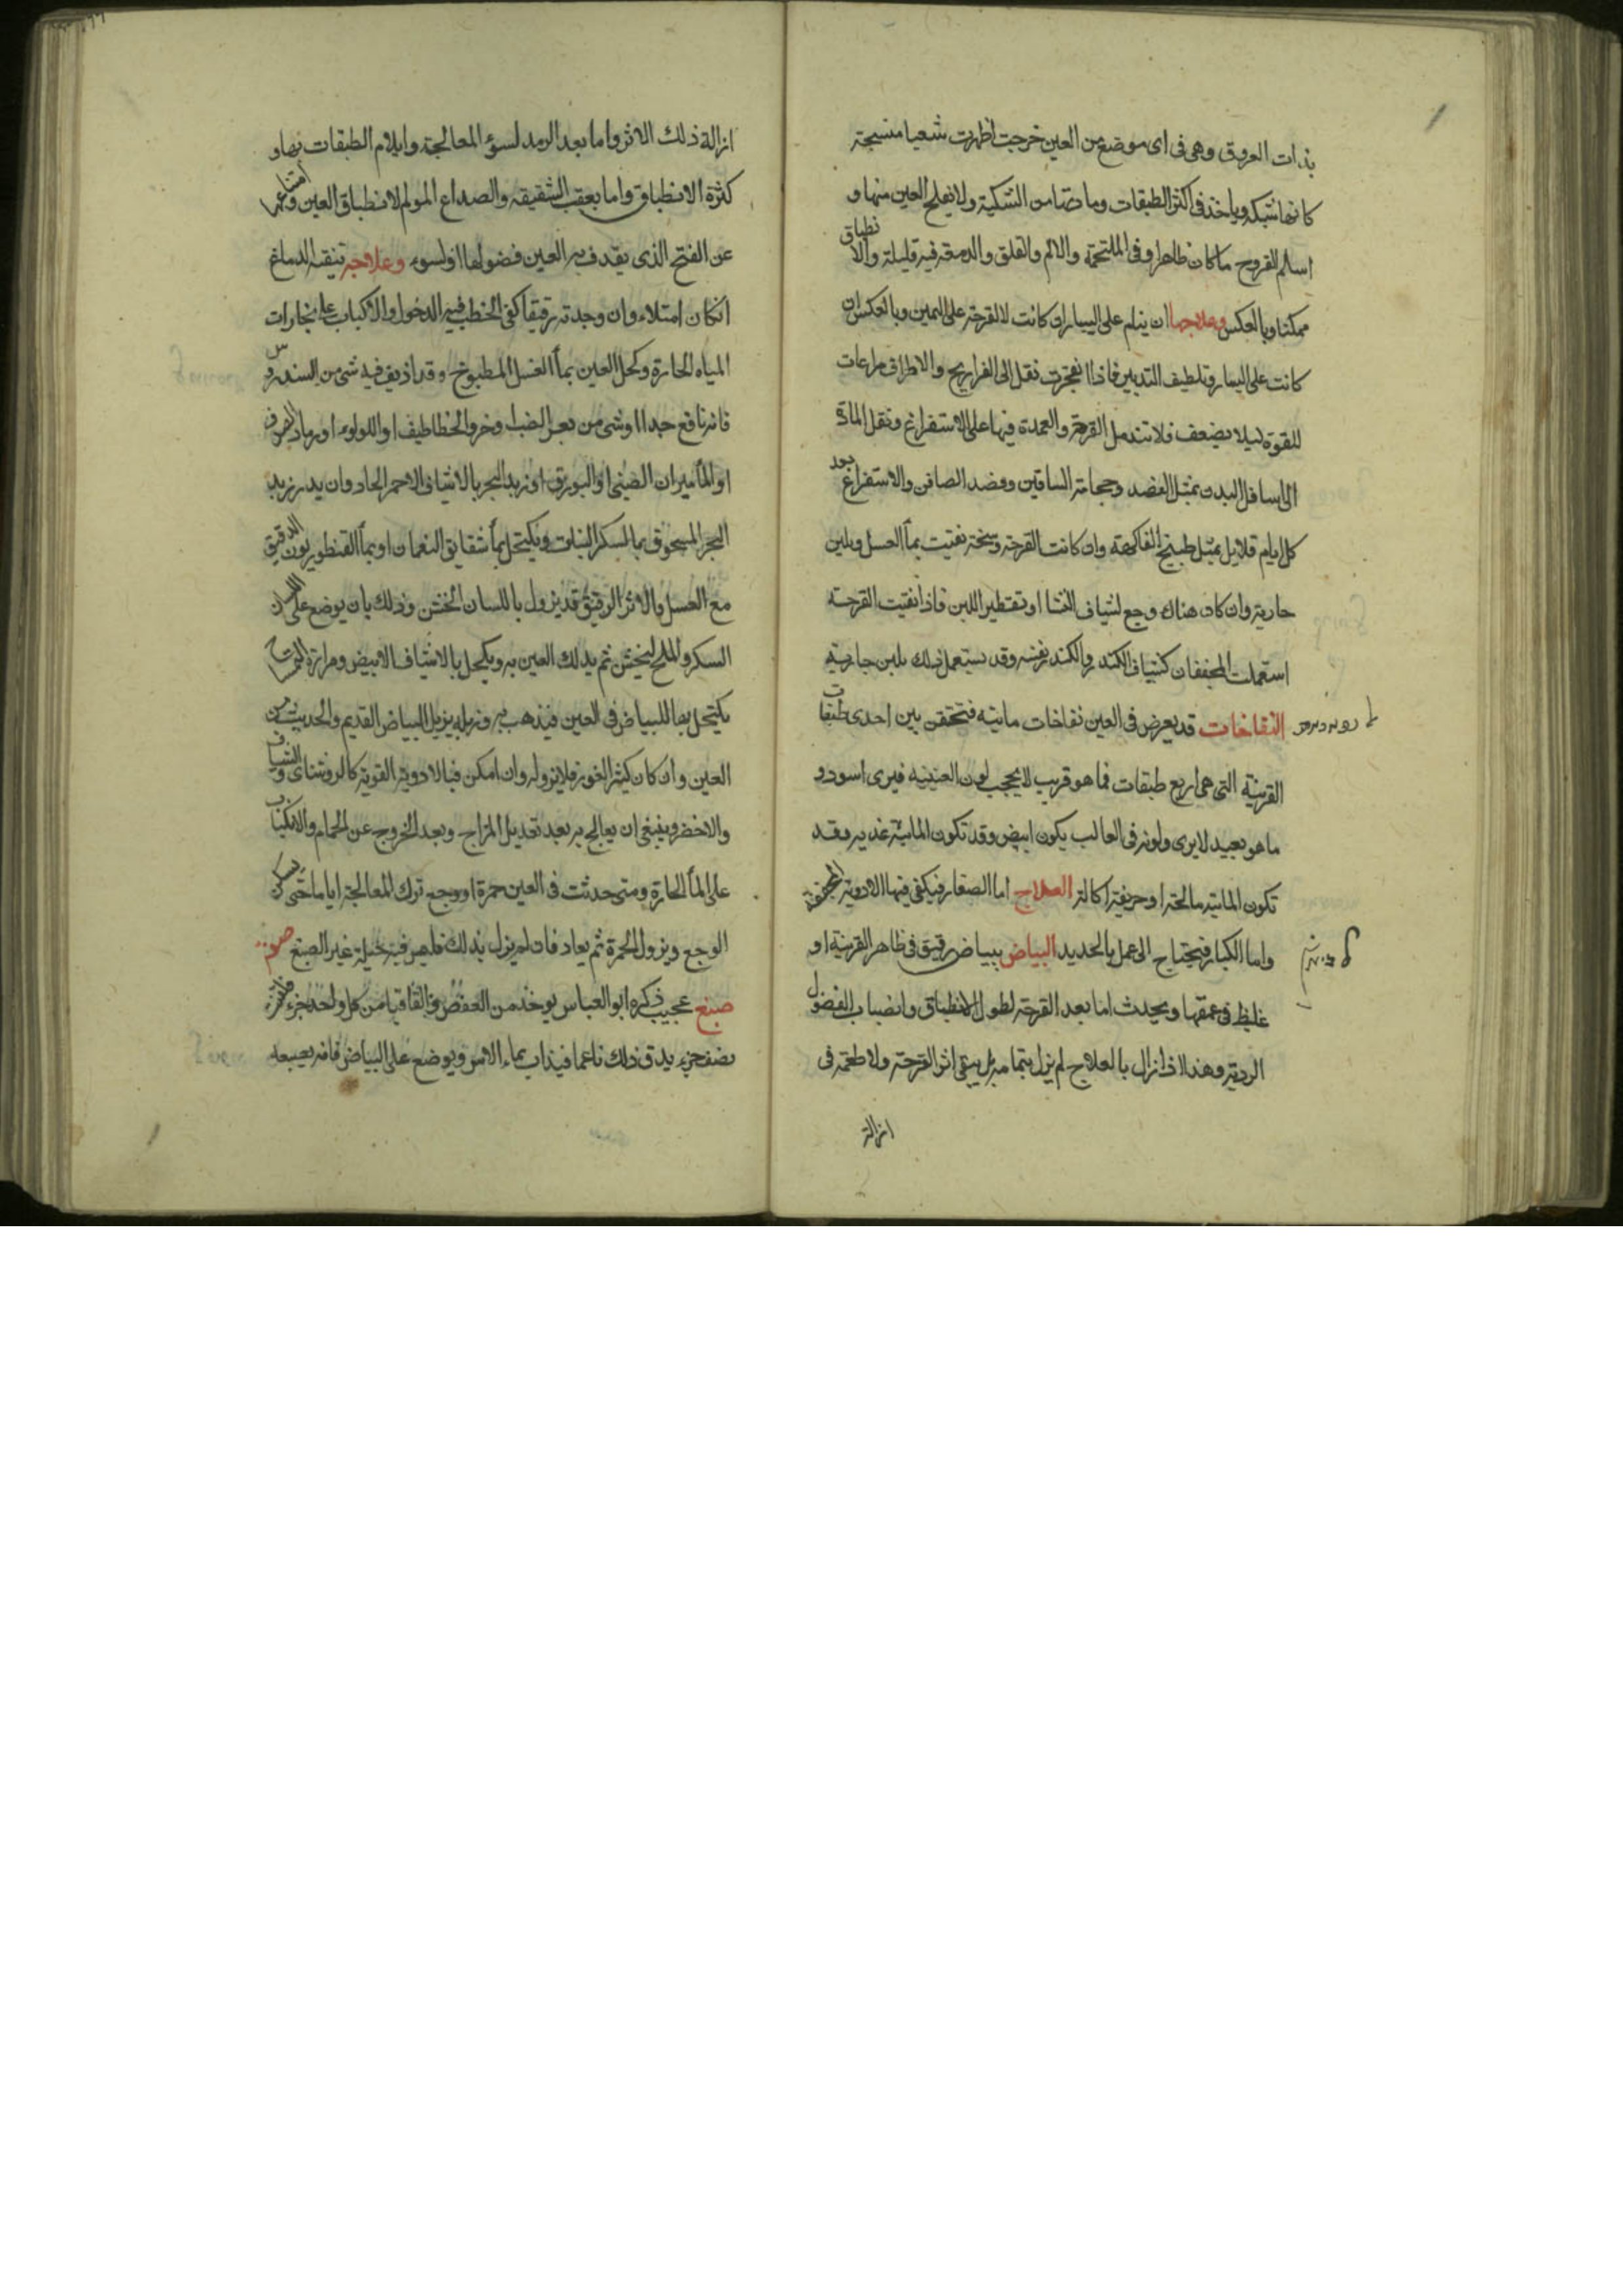 بذات العروق وهى فى اى موضع من العين خرجت اظهرت شعبا منتسجة
كانها شبكة وياخذ فى اكثر الطبقات وما تحتها من الشبكية ولا يفلح العين منها و
اسلم القروح ما كان ظاهرا وفى الملتحمة والالم والقلق والدمعة فيه قليلة والانطباق
ممكنا وبالعكس وعلاجها ان ينام على اليسار ان كانت القرحة على اليمين وبالعكس ان
كانت على اليسار وتلطيف التدبير فاذا انفجرت نقل الى الفراريج والاطراف مراعات
للقوة ليلا يضعف فلا تندمل القرحة والعمدة فيها على الاستفراغ ونقل المادة
الى اسافل البدن بمثل الفصد وحجامة الساقين وفصد الصافن والاستفراغ بعد
كل ايام قلايل بمثل طبيخ الفاكهة وان كانت القرحة وسخة نقيت بمأ العسل وبلبن
جارية وان كان هناك وجع اشياف النشا او تقطير اللبن فاذا نقيت القرحة
استعملت المجففات كشياف الكندر والكندر نفسه وقد يستعمل ذلك بلبن جارية
النفاخات قد يعرض فى العين نفاخات مائية فتحتقن بين احدى طبقات
القرنية التى هى اربع طبقات فما هو قريب لا يحجب لون العنبيه فيرى اسود و
ما هو بعيد لا يرى ولونه فى الغالب يكون ابيض وقد تكون المائية عذبه وقد
تكون المائية مالحة او حريفة اكالة العلاج اما الصغار فيكفى فيها الادوية المجففة
واما الكبار فيحتاج الى عمل بالحديد البياض بياض رقيق فى ظاهر القرنية او
غليظ فى عمقها ويحدث اما بعد القرحة لطول الانطباق وانصباب الفضول
الردية وهذا اذا زال بالعلاج لم يزل بتمامه بل يبقى اثر القرحة ولا طمع فى
ازالة
ازالة ذلك الاثر واما بعد الرمد لسوء المعالجة وايلام الطبقات بها و
كثرة الانطباق واما بعقب الشقيقه والصداع المولم لانطباق العين وامتناعها
عن الفتح الذى يقذف به العين فضولها او لسوء وعلاجه تنقية الدماغ
ان كان امتلاء وان وجدته رقيقا كفى الخطب فيه الدخول والاكباب على بخارات
المياه الحارة وكحل العين بمأ العسل المطبوخ وقد اذيف فيه شى من السندروس
فانه نافع جدا او شى من بعر الضب او خرو الخطاطيف او اللولوء او رماد
او الماميران الصينى او البورق او زبد البحر بالاشياف الاحمر الحاد وان يذر زبد
البحر المسحوق بمأ السكر النبات ويكتحل بمأ شقايق النعمان او بمأ القنطوريون الدقيق
مع العسل والاثر الرقيق قد يزول باللسان الخشن وذلك بان يوضع على اللسان
السكر والملح ليخشن ثم يدلك العين به ويكحل بالاشياف الابيض ومرارة التمساح
يكتحل بها للبياض فى العين فيذهب به وزبله يزيل البياض القديم والحديث من
العين وان كان كثير الغور فلا يزوله وان امكن فبالادوية القوية كالروشناى والشياف
والاخضر وينبغى ان يعالج به بعد تعديل المزاج وبعد الخروج من الحمام والانكباب
على المأ الحارة ومتى حدثت فى العين حمرة او وجع ترك المعالجة اياما حتى يسكن
الوجع ويزول الحمرة ثم يعاد فان لم يزل بذلك فليس فيه حيلة غير الصبغ
صبغ عجيب ذكره ابو العباس يوخذ من العفص والقاقيا من كل واحد جزء
نصف جزء يدق ذلك ناعما فيذاب بماء الاس ويوضع على البياض فانه يصبغه